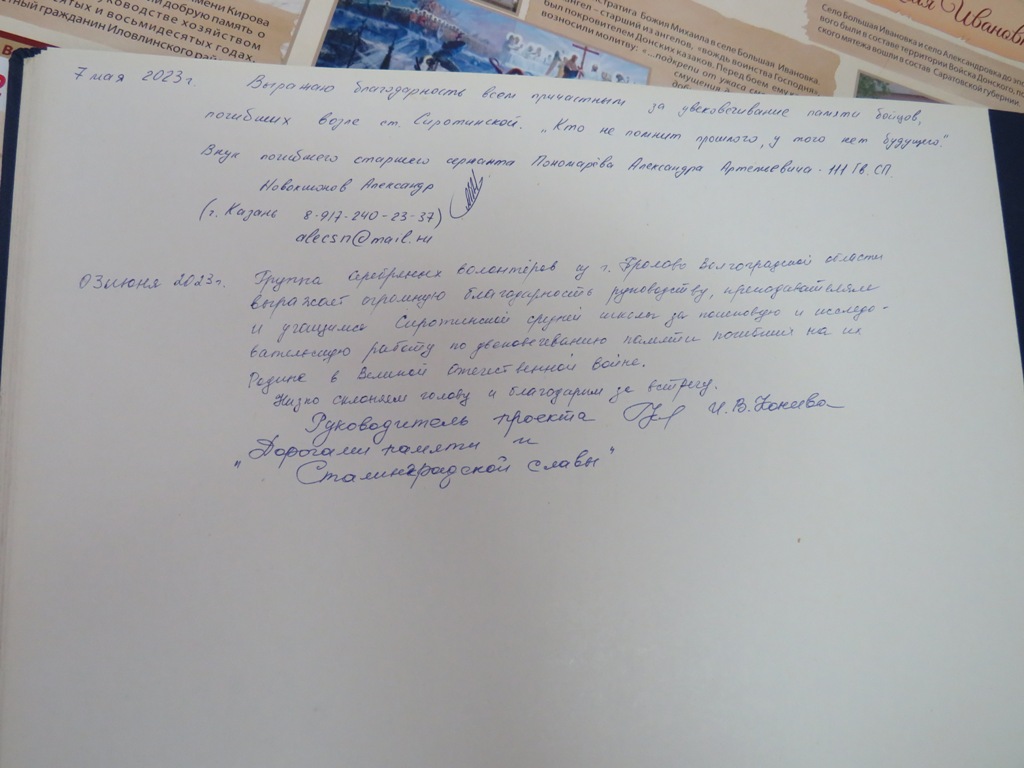 имени Кирова
ли добрую память о
уководстве хозяйством
сятых и восьмидесятых годах,
етный гражданин Иловлинского рай
Стратига Божия Михаила в селе Большая Ивановка.
ангел - старший из ангелов, «вождь воинства Господня»,
был покровителем Донских казаков. Перед боем ему
возносили молитву: «...подкрепи от ужаса
Иванов
Село Большая Ивановка и село Александровка до
были в составе территории Войска Донского, по
мятежа вошли в состав Саратовской губернии.
7 мая 2023г. Выражаю благодарность всем причастным за увековечивание памяти бойцов,
погибших возле ст. Сиротинской. „Кто не помнит прошлого, у того нет будущего."
Внук погибшего старшего сержанта Пономарёва Александра Артемьевича - 111 Гв. СП.
Новокшонов Александр
(г. Казань 8-917-240-23-37)
alecsn@mail.ru
03 июня 2023г. Группа серебряных волонтёров из г. Фролово Волгоградской области
выражает огромную благодарность руководству, преподавателям
и учащимся Сиротинской средней школы за поисковую и исследо-
вательскую работу по увековечиванию памяти погибших на их
Родине в Великой Отечественной войне.
Низко склоняем голову и благодарим за встречу.
Руководитель проекта И.В.
„Дорогами памяти и
Сталинградской славы"